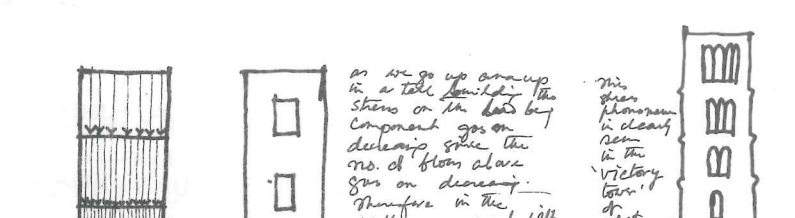 as we go up and up
in a tall building the
stress on the load beg
component goes on
decreasing since the
no. of floors above
goes on decreasing.
Therefore in the
this
stress
phenomenon
is clearly
seen
in the
'victory
tower'
of